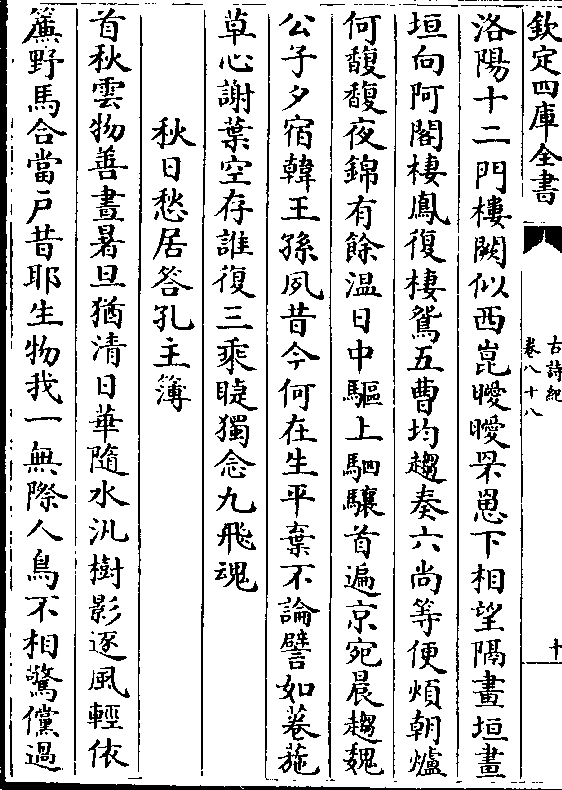 欽定四庫全書
古詩紀
卷八十八
十
洛陽十二門樓闕似西崑曖曖罘罳下相望隔畫垣畫
垣向阿閣棲鳳復棲鴛五曹均趨奏六尚等便煩朝爐
何馥馥夜錦有餘温日中驅上駟驤首遍京宛晨趨魏
公子夕宿韓王孫夙昔今何在生平棄不論譬如菤葹
草心謝葉空存誰復三乘睫獨念九飛魂
秋日愁居答孔主簿
首秋雲物善晝暑旦猶清日華隨水汎樹影逐風輕依
簷野馬合當戸昔耶生物我一無際人鳥不相驚儻過